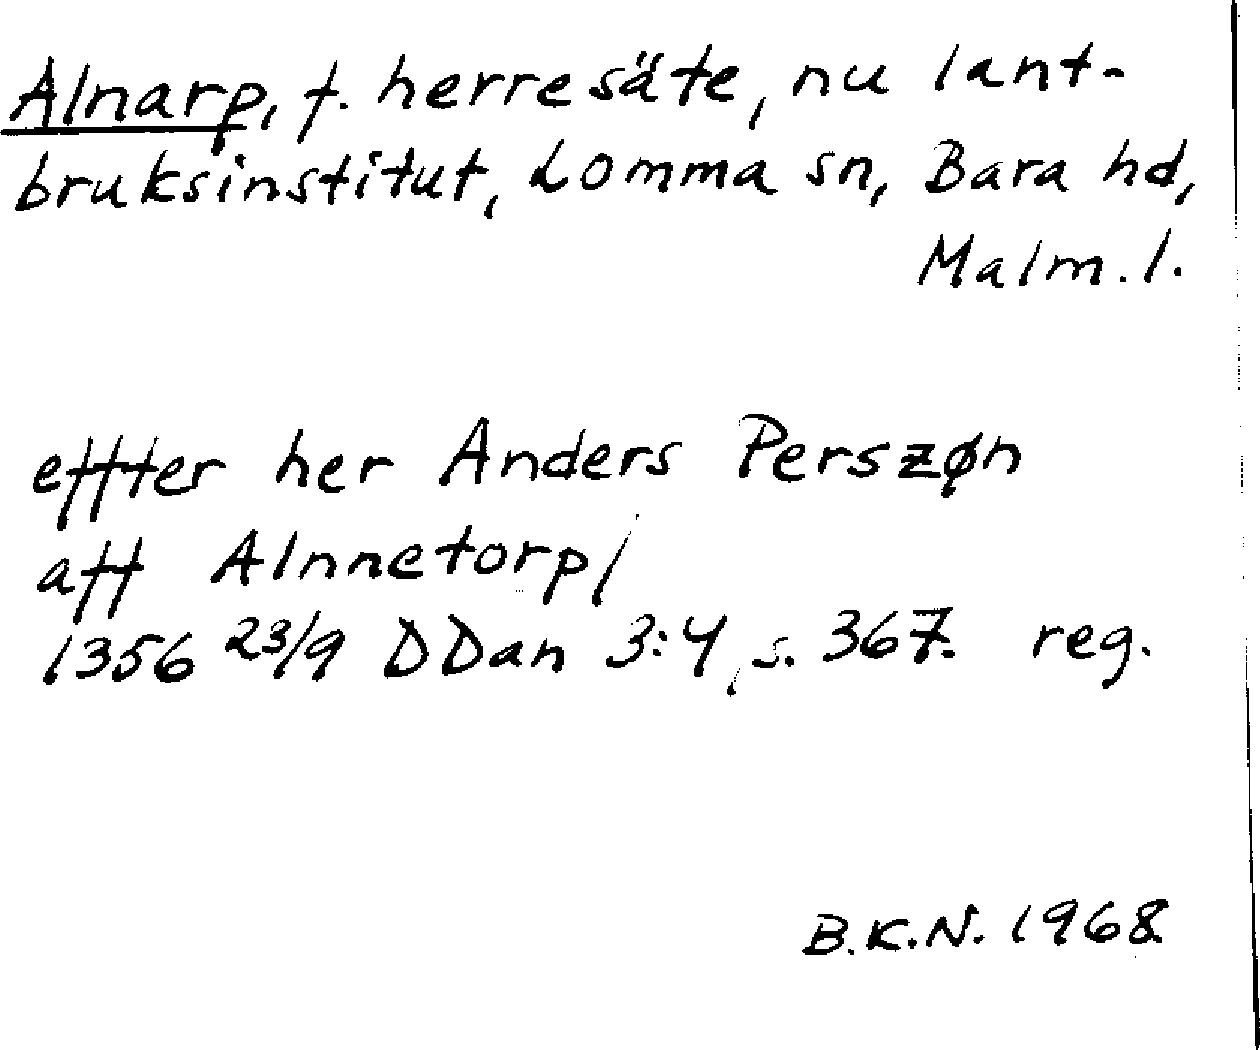 Alnarp, f. herresäte, nu lant-
bruksinstitut, Lomma sn, Bara hd,
Malm. l.
effter her Anders Perszøn
aff Alnnetorp/
1356 23/9 DDan 3:4, s. 367. reg.
B.K.N. 1968